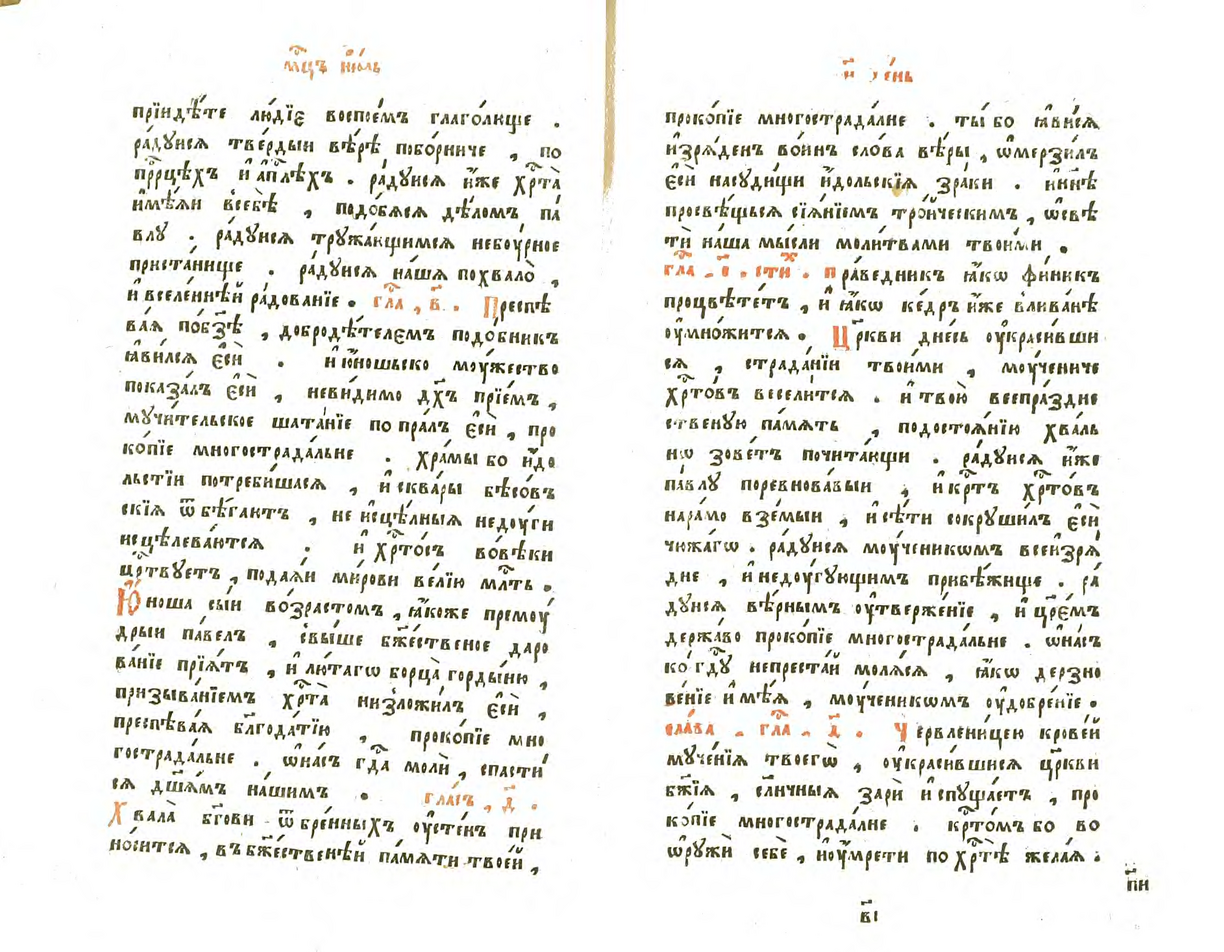 мц҃ъ ию́ль
прїидѣ́те лю́дїє воспое́мъ глаго́люще .
ра́дуися тве́рдыи вѣ́рѣ побо́рниче , по
прⷪ҇рцѣхъ и҆ а҆пⷭ҇лѣхъ . ра́дуися и҆́же хрⷭ҇та̀
и҆мѣ́яи всебѣ̀ , подо́бяся дѣ́ломъ па́
влу . ра́дуися тружа́ющимся небоу́рное
приста́нище . ра́дуися на́шя похвало̀ ,
и҆ вселе́ннѣй ра́дованїе . гла́ , в҃ . Преспѣ
ва́я побз҃ѣ , добродѣ́телемъ подо́бникъ
ꙗ҆ви́лся є҆сѝ . и҆ ю҆́ношьско моу́жество
показа́лъ є҆сѝ , неви́димо дх҃ъ прїе́мъ ,
мучи́тельское шата́нїе попра́лъ є҆сѝ , про
ко́пїе многострада́льне . хра́мы бо и҆́до
льстїи потреби́шася , и҆ сква́ры бѣсо́въ
скїя ѿбѣ́гаютъ , не исцѣ́лныя неду́ги
исцѣлева́ются . и҆ хрⷭ҇то́съ во́вѣки
црⷭ҇твуетъ , пода́яи ми́рови ве́лїю млⷭ҇ть .
Ю҆́ноша сы́и во́зрастомъ , ꙗ҆́коже премоу́
дрыи па́велъ , свы́ше бж҃е́ственое даро
ва́нїе прїя́тъ , и҆ лю́тагѡ борца̀ горды́ню ,
призыва́нїемъ хрⷭ҇та̀ низложи́лъ є҆сѝ ,
преспѣва́я блг҃ода́тїю , проко́пїе мно
гострада́льне . ѡ҆на́съ гдⷭ҇а молѝ , спасти́
ся дш҃а́мъ на́шимъ . гла́съ , д҃ .
Хвала̀ бг҃ови ѿ бре́нныхъ оу҆сте́нъ при
но́сится , въ бж҃е́ственѣй па́мяти твое́й ,
и҃ де́нь
проко́пїе многострада́лне . ты́ бо ꙗ҆ви́ся
и҆зря́денъ во́инъ сло́ва вѣ́ры , ѡ҆мерзи́лъ
є҆сѝ насуди́щи и҆́дольскїя зра́ки . и҆нн҃ѣ
просвѣ́щься сїя́нїемъ тро́ическимъ , ѡ҆свѣ
тѝ на́ша мы́сли моли́твами твои́ми .
гла́ . є҃ . сти́х . Пра́ведникъ ꙗ҆́кѡ фи́никъ
процвѣте́тъ , и҆ ꙗ҆́кѡ ке́дръ и҆́же влива́нѣ
оу҆мно́жится . Цр҃кви дне́сь оу҆краси́вши
ся , страда́нїи твои́ми , моу́чениче
хрⷭ҇то́въ весели́тся . и҆ твою̀ всепра́здне
ственую па́мять , подостоя́нїю хва́ль
нѡ зове́тъ почита́ющи . ра́дуися и҆́же
па́влу поревнова́выи , и҆ крⷭ҇тъ хрⷭ҇то́въ
нара́мо взе́мыи , и҆ сѣ́ти сокруши́лъ є҆сѝ
чю́жагѡ . ра́дуися моу́ченикѡмъ всеизря́
дне , и҆ недоу́гующимъ прибѣ́жище . ра́
дуися вѣ́рнымъ оу҆твержє́нїе , и҆ црⷭ҇е́мъ
держа́во проко́пїе многострада́льне . ѡ҆на́съ
ко гдⷭ҇у непреста́й моля́ся , ꙗ҆́кѡ дерзно
ве́нїе и҆мѣ́я , моу́ченикѡмъ оу҆добре́нїе .
сла́ва . гла́ . д҃ . Черьвлени́цею крове́й
муче́нїя твоегѡ̀ , оу҆краси́вшися цр҃кви
бж҃їя , сл҃ичныя зарѝ и҆спуща́етъ , про
ко́пїе многострада́лне . крⷭ҇то́мъ бо во
ѡ҆ружѝ себѐ , и҆ оу҆мре́ти по хрⷭ҇тѣ̀ жела́я .
пи҃
в҃і